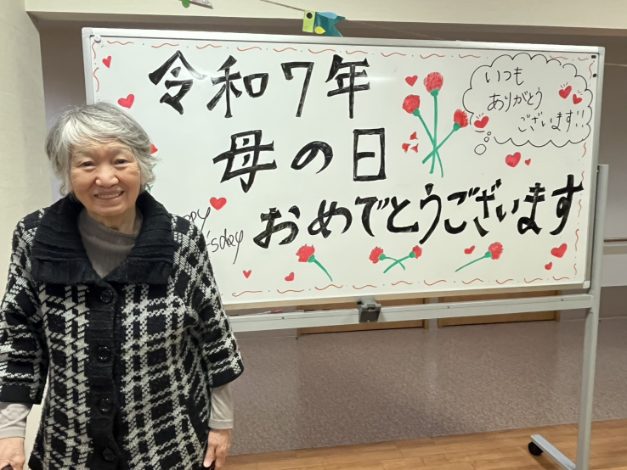 令和7年
母の日
おめでとうございます
いつも
ありがとう
ございます!!
ppy
's day